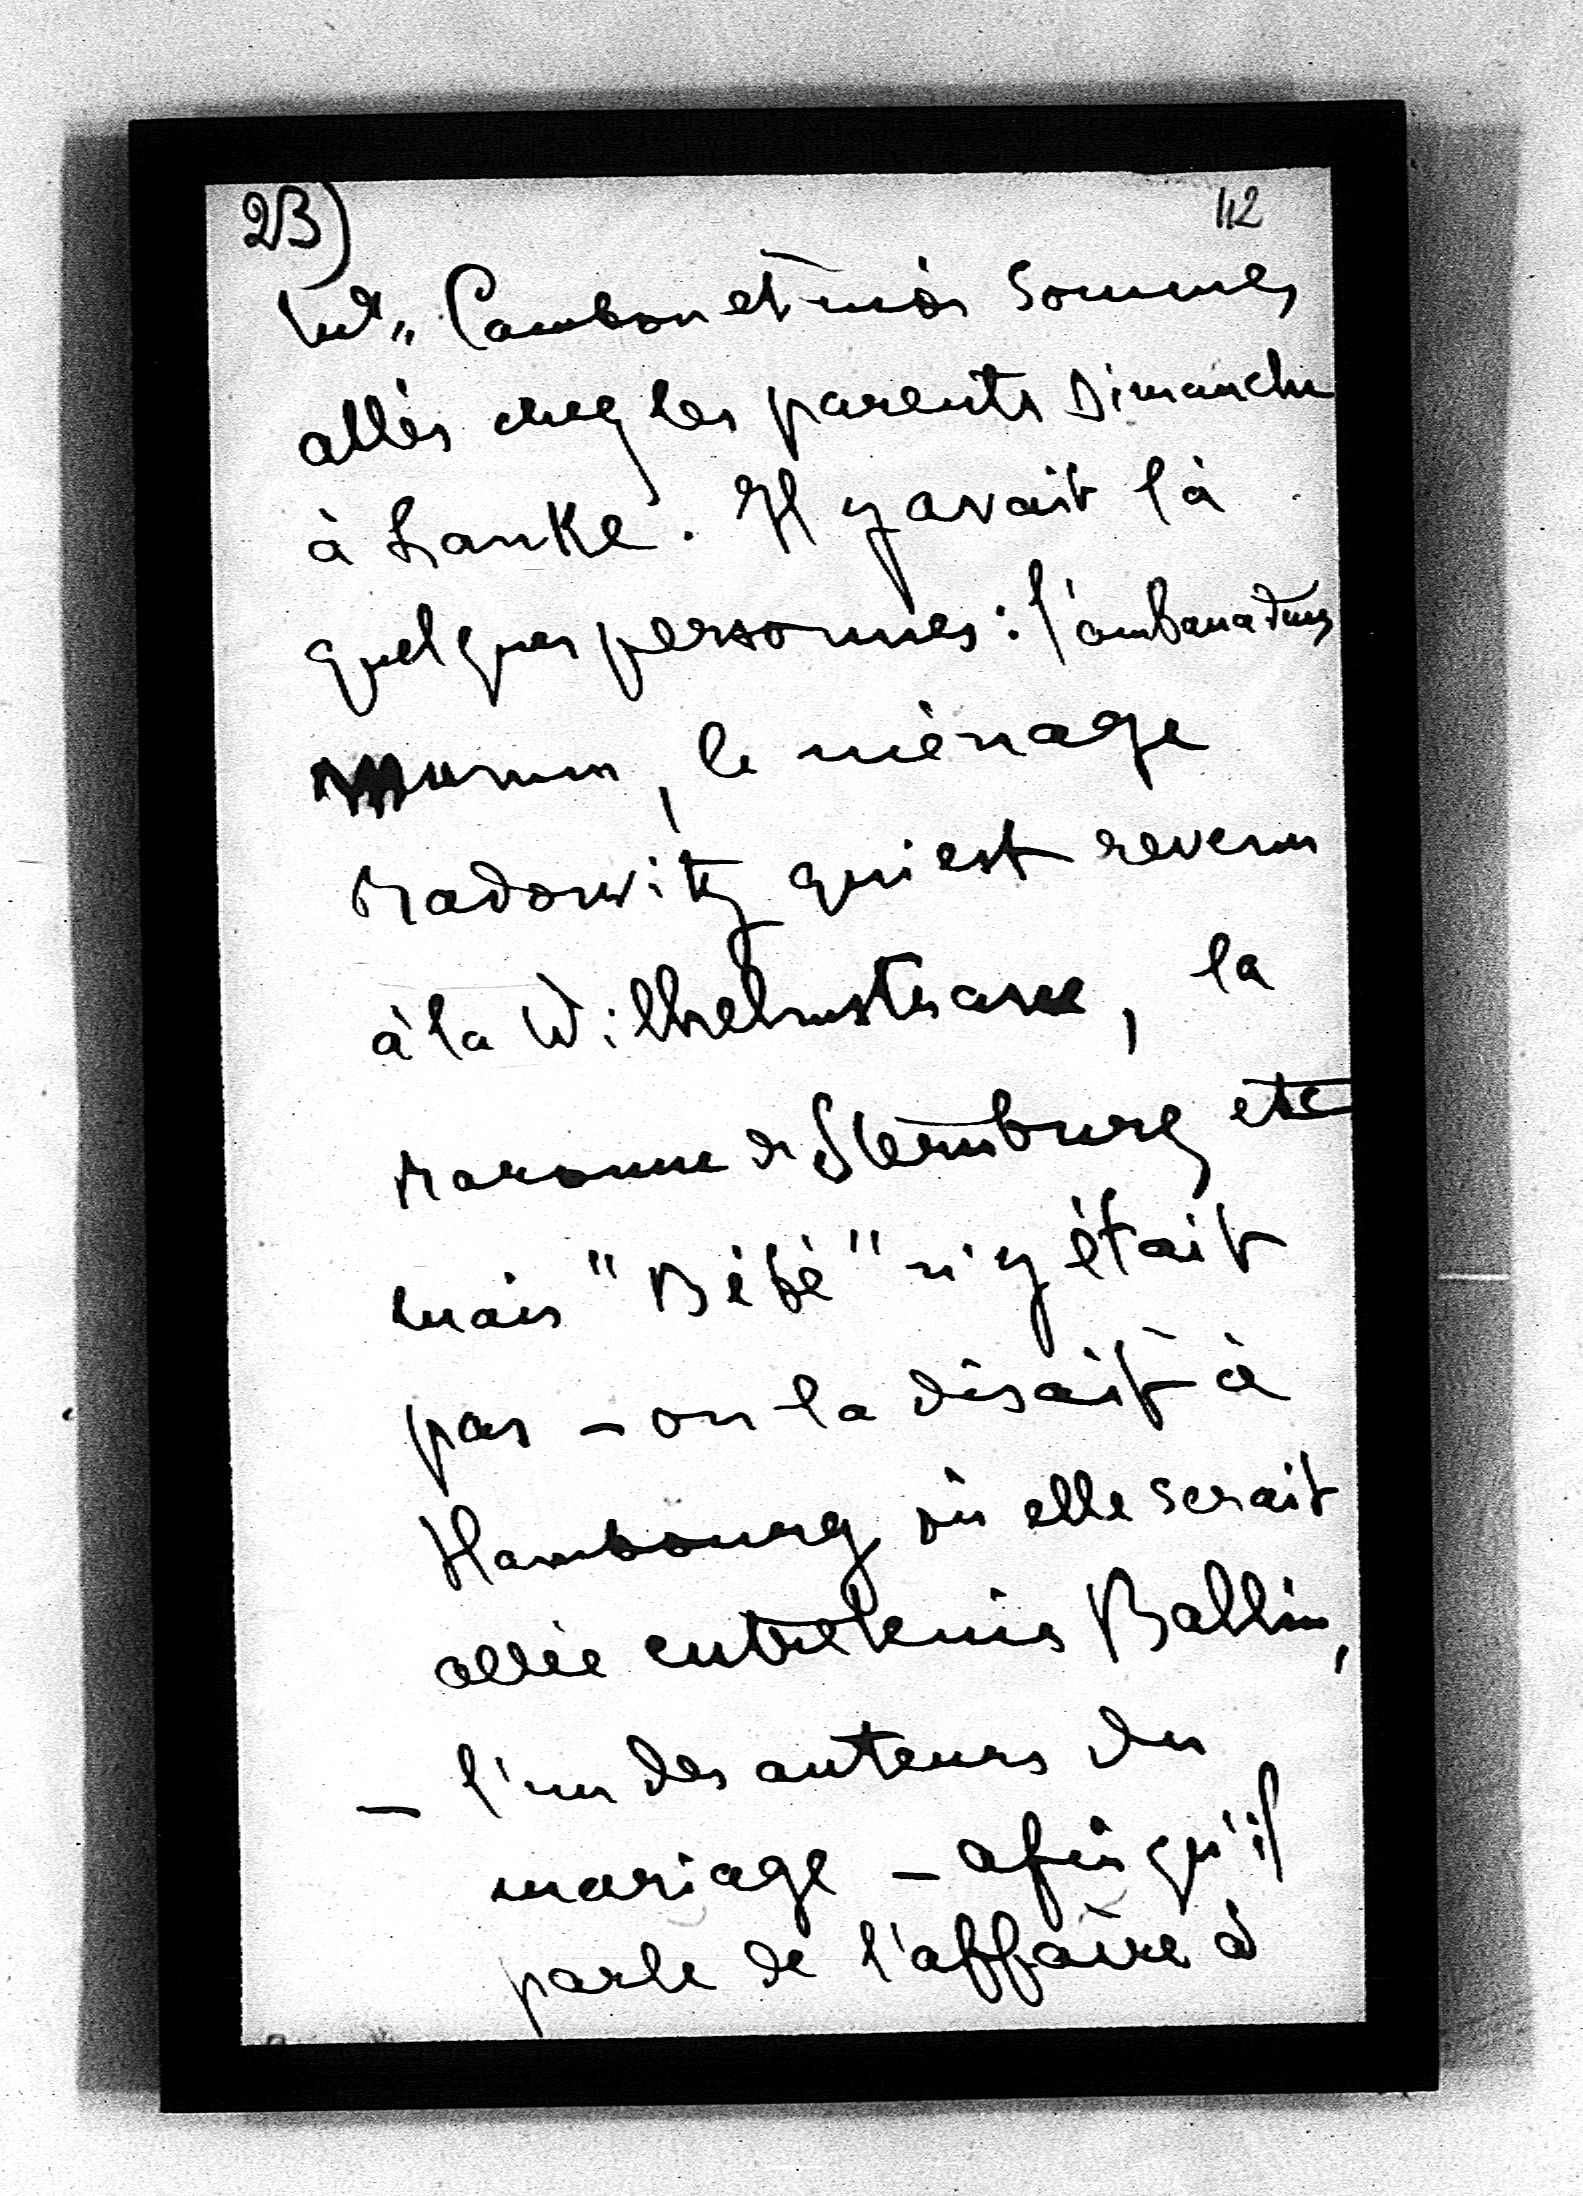 23)
112
Mr. Cambon et moi sommes
allés chez les parents Dimanche
à Lanke. Il y avait là
quelques personnes : l'ambassadeur
Mumm, le ménage
Radowitz qui est revenu
à la Wilhelmstrasse, la
Baronne de Sternburg etc
mais "Bébé" n'y était
pas – on la disait à
Hambourg où elle serait
allée entretenir Ballin,
– l'un des auteurs du
mariage – afin qu'il
parle de l'affaire à